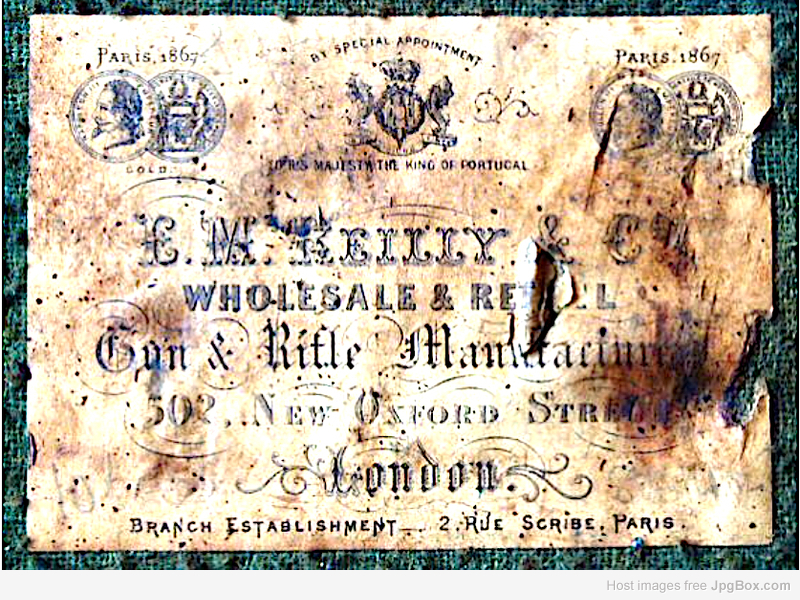 PARIS, 1867
BY SPECIAL APPOINTMENT
PARIS, 1867
GOLD
MAJESTY THE KING OF PORTUGAL
E. M. REILLY & Co.
WHOLESALE & RETAIL
Gun & Rifle Manufacturers
502, NEW OXFORD STREET
London.
BRANCH ESTABLISHMENT 2, RUE SCRIBE, PARIS.
Host images free JpgBox.com